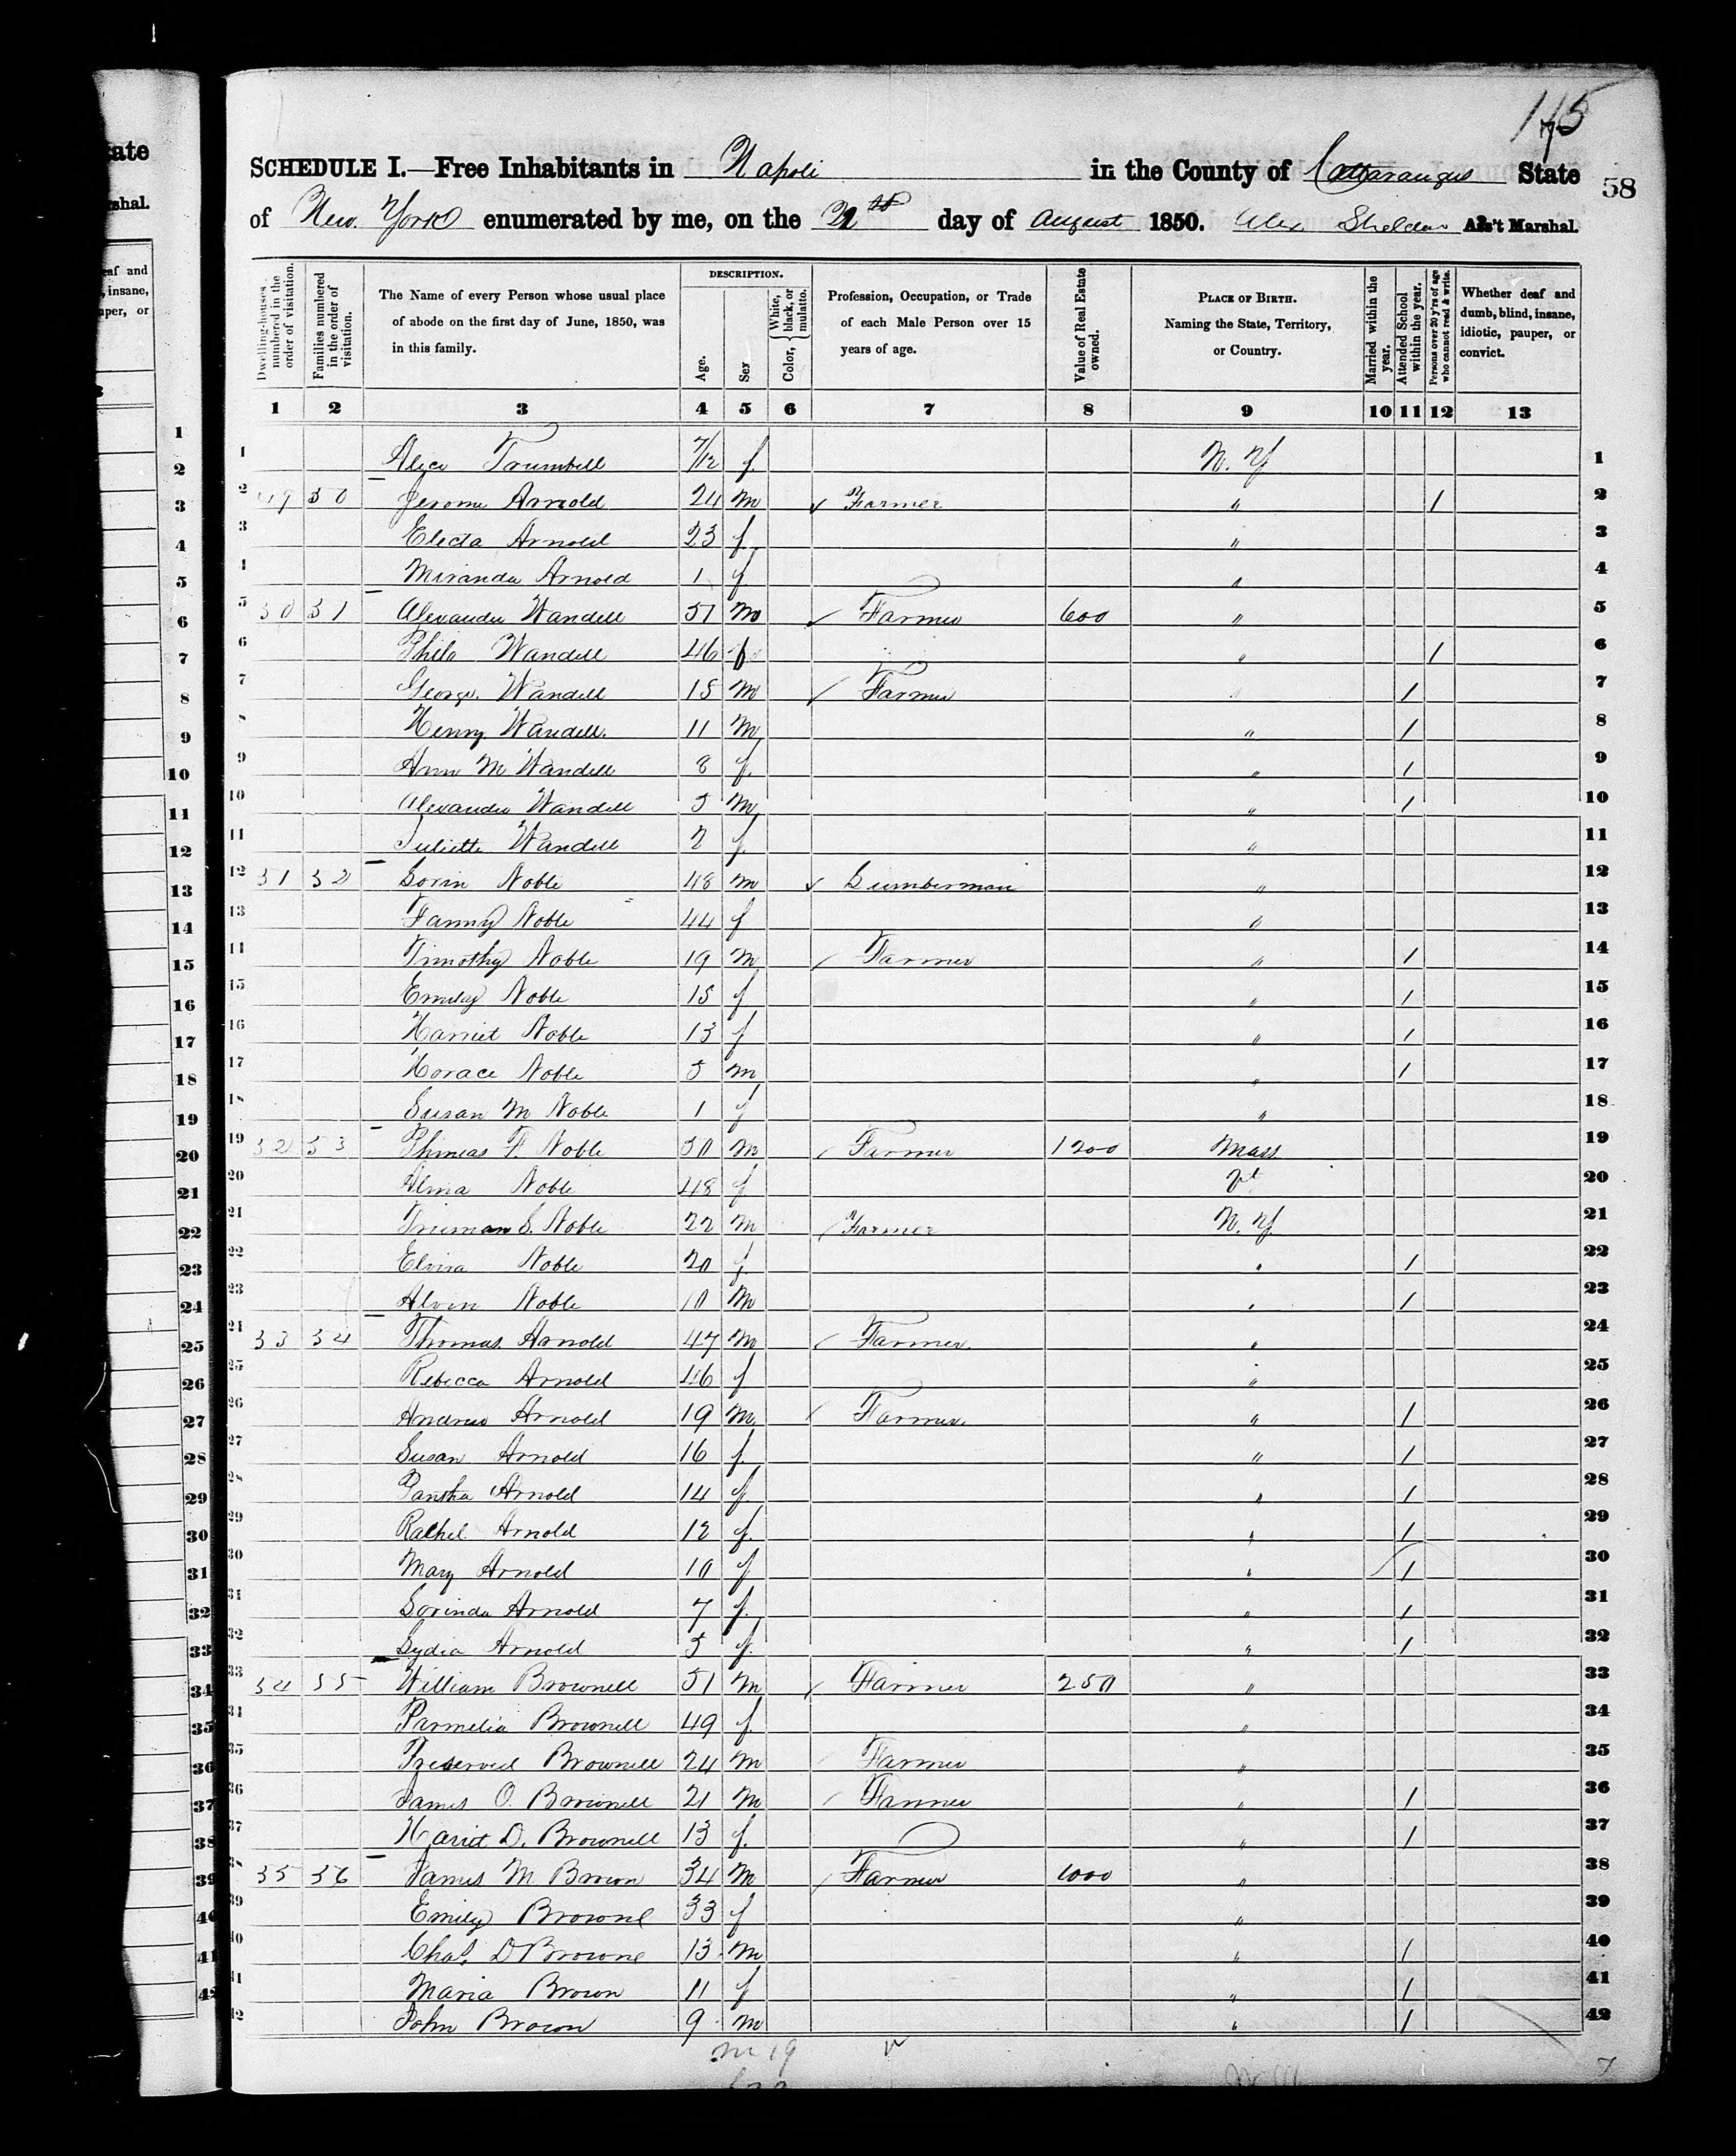 145
58
SCHEDULE I.—Free Inhabitants in Napoli in the County of Cattaraugus State
of New York enumerated by me, on the day of August 1850. Alex Sheldon Ass't Marshal.
Dwelling-houses numbered in the order of visitation.
Families numbered in the order of visitation.
The Name of every Person whose usual place of abode on the first day of June, 1850, was in this family.
DESCRIPTION.
Age.
Sex
Color, White, black, or mulatto.
Profession, Occupation, or Trade of each Male Person over 15 years of age.
Value of Real Estate owned.
PLACE OF BIRTH. Naming the State, Territory, or Country.
Married within the year.
Attended School within the year.
Persons over 20 y'rs of age who cannot read & write.
Whether deaf and dumb, blind, insane, idiotic, pauper, or convict.
1 2 3 4 5 6 7 8 9 10 11 12 13
1 Alice Trumbell 7/12 f N. Y 1
2 49 50 Jerome Arnold 24 m Farmer " 1 2
3 Electa Arnold 23 f " 3
4 Miranda Arnold 1 f " 4
5 50 51 Alexander Wandell 51 m Farmer 600 " 5
6 Phila Wandell 46 f " 1 6
7 George Wandell 15 m Farmer " 1 7
8 Henry Wandell 11 m " 1 8
9 Ann M Wandell 8 f " 1 9
10 Alexander Wandell 5 m " 1 10
11 Juliette Wandell 2 f " 11
12 51 52 Lorin Noble 48 m Lumberman " 12
13 Fanny Noble 44 f " 13
14 Timothy Noble 19 m Farmer " 1 14
15 Emily Noble 15 f " 1 15
16 Harriet Noble 13 f " 1 16
17 Horace Noble 5 m " 1 17
18 Susan M Noble 1 f " 18
19 52 53 Phineas F. Noble 50 m Farmer 1200 Mass 19
20 Alma Noble 48 f Vt 20
21 Truman S. Noble 22 m Farmer N. Y. 21
22 Elvira Noble 20 f " 1 22
23 Alvin Noble 10 m " 1 23
24 53 54 Thomas Arnold 47 m Farmer " 24
25 Rebecca Arnold 46 f " 25
26 Andrew Arnold 19 m Farmer " 1 26
27 Susan Arnold 16 f " 1 27
28 Arnold 14 f " 1 28
29 Rachel Arnold 12 f " 1 29
30 Mary Arnold 10 f " 1 30
31 Lorinda Arnold 7 f " 1 31
32 Lydia Arnold 5 f " 1 32
33 54 55 William Brownell 51 m Farmer 250 " 33
34 Parmelia Brownell 49 f " 34
35 Preserved Brownell 24 m Farmer " 35
36 James O. Brownell 21 m Farmer " 1 36
37 Hariet D. Brownell 13 f " 1 37
38 55 56 James M Brown 34 m Farmer 1000 " 38
39 Emily Browne 33 f " 39
40 Chas. D Browne 13 m " 1 40
41 Maria Brown 11 f " 1 41
42 John Brown 9 m " 1 42
m 19